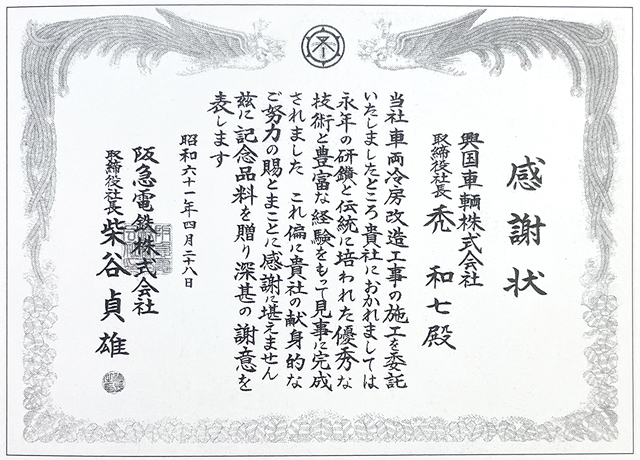 感謝状
興国車輌株式会社
取締役社長 禿 和七殿
当社車両冷房改造工事の施工を委託
いたしましたところ貴社におかれましては
永年の研鑽と伝統に培われた優秀な
技術と豊富な経験をもって見事に完成
されました これ偏に貴社の献身的な
ご努力の賜とまことに感謝に堪えません
茲に記念品料を贈り深甚の謝意を
表します
昭和六十一年四月二十八日
阪急電鉄株式会社
取締役社長 柴谷貞雄